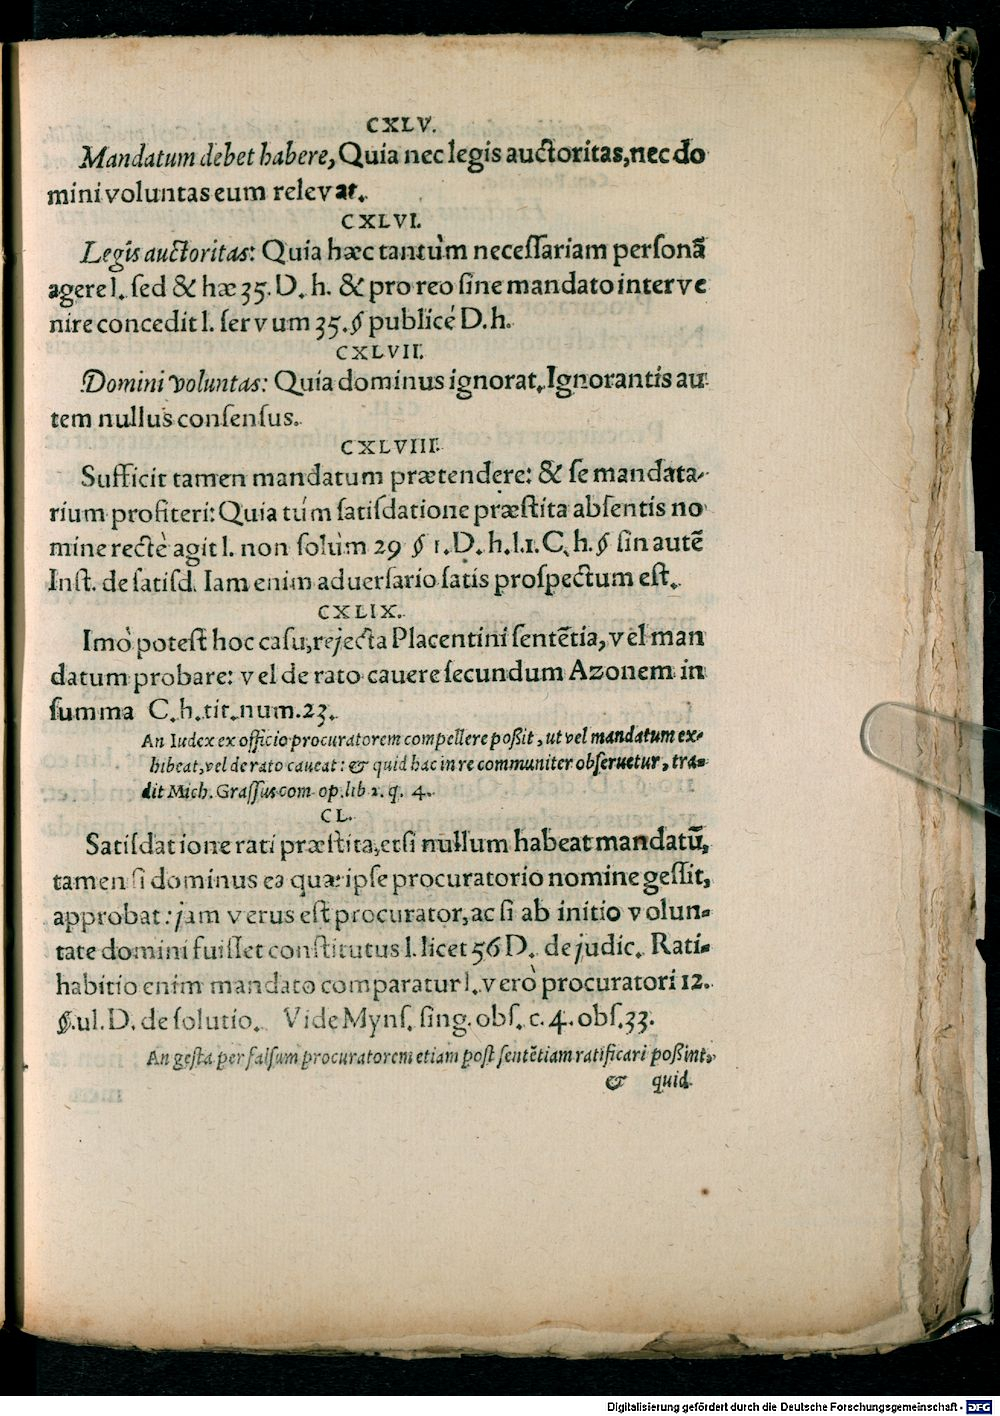 CXLV.
Mandatum debet habere, Quia nec legis auctoritas, nec do
mini voluntas eum relevat.
CXLVI.
Legis auctoritas: Quia hæc tantùm necessariam personã
agere l. sed & hæ 35. D. h. & pro reo sine mandato interve
nire concedit l. servum 35. § publicé D. h.
CXLVII.
Domini voluntas: Quia dominus ignorat. Ignorantis au
tem nullus consensus.
CXLVIII.
Sufficit tamen mandatum prætendere: & se mandata-
rium profiteri: Quia túm satisdatione præstita absentis no
mine rectè agit l. non solùm 29 § 1. D. h. l. 1. C. h. § sin autẽ
Inst. de satisd. Iam enim adversario satis prospectum est.
CXLIX.
Imò potest hoc casu, rejecta Placentini sentẽtia, vel man
datum probare: vel de rato cavere secundum Azonem in
summa C. h. tit. num. 23.
An Iudex ex officio procuratorem compellere poßit, ut vel mandatum ex-
hibeat, vel de rato caveat: & quid hac in re communiter obseruetur, tra-
dit Mich. Grassus com. op. lib 2. q. 4.
CL.
Satisdatione rati præstita, etsi nullum habeat mandatũ,
tamen si dominus ea quæ ipse procuratorio nomine gessit,
approbat: jam verus est procurator, ac si ab initio volun-
tate domini fuisset constitutus l. licet 56 D. de judic. Rati-
habitio enim mandato comparatur l. verò procuratori 12.
§. ul. D. de solutio. Vide Myns. sing. obs. c. 4. obs. 33.
An gesta per falsum procuratorem etiam post sentẽtiam ratificari poßint,
& quid
Digitalisierung gefördert durch die Deutsche Forschungsgemeinschaft - DFG